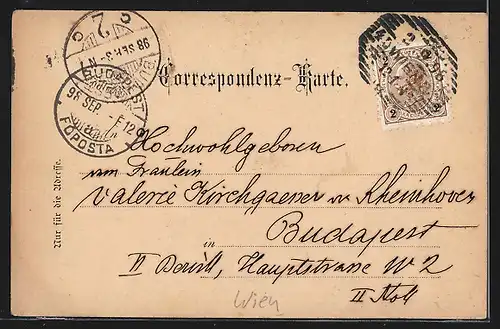 Correspondenz-Karte.
BUDAPEST
98 SEP. 3. N
2
98 SEP.
FŐPOSTA
2 2
Nur für die Adresse.
Hochwohlgeboren
Fräulein
Valerie Kirchgaener v. Rheinhoven
in Budapest
II Hauptstrasse No 2
II Stock
Wien